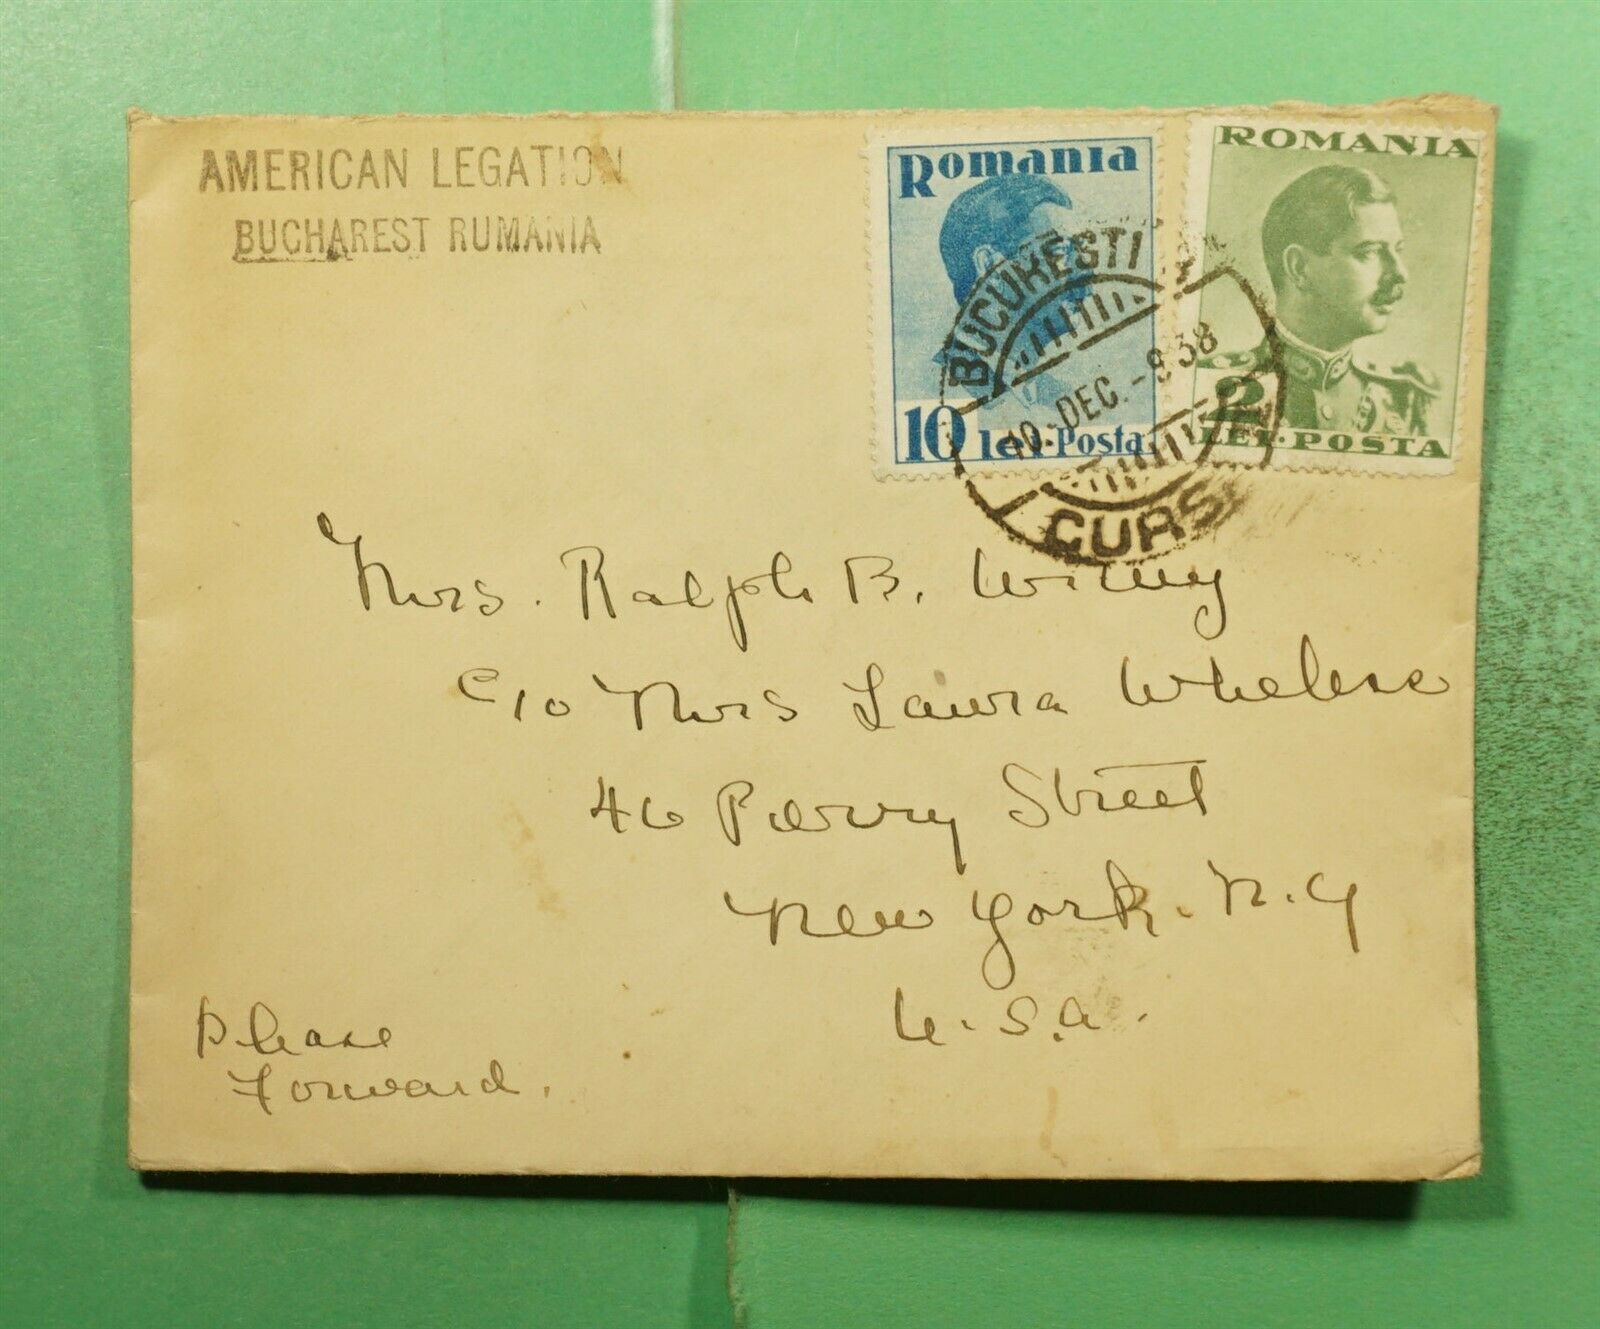 AMERICAN LEGATION
BUCHAREST RUMANIA
Romania
10 lei. Posta.
ROMANIA
2
LEI. POSTA
BUCUREȘTI
10. DEC. - 9 38
CURS
Mrs. Ralph B. Wilmy
c/o Mrs Laura Wheless
46 Perry Street
New York. N.Y
U.S.A.
Please
Forward.